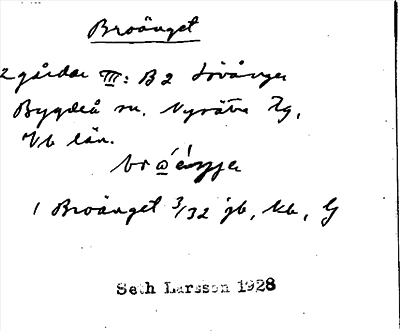 Broänget
2 gårdar III: B 2 Lövånger
Bygdeå sn. Nysätra Tg,
Vb län.
1 Broänget 3/32 jb, kb, G
Seth Larsson 1928